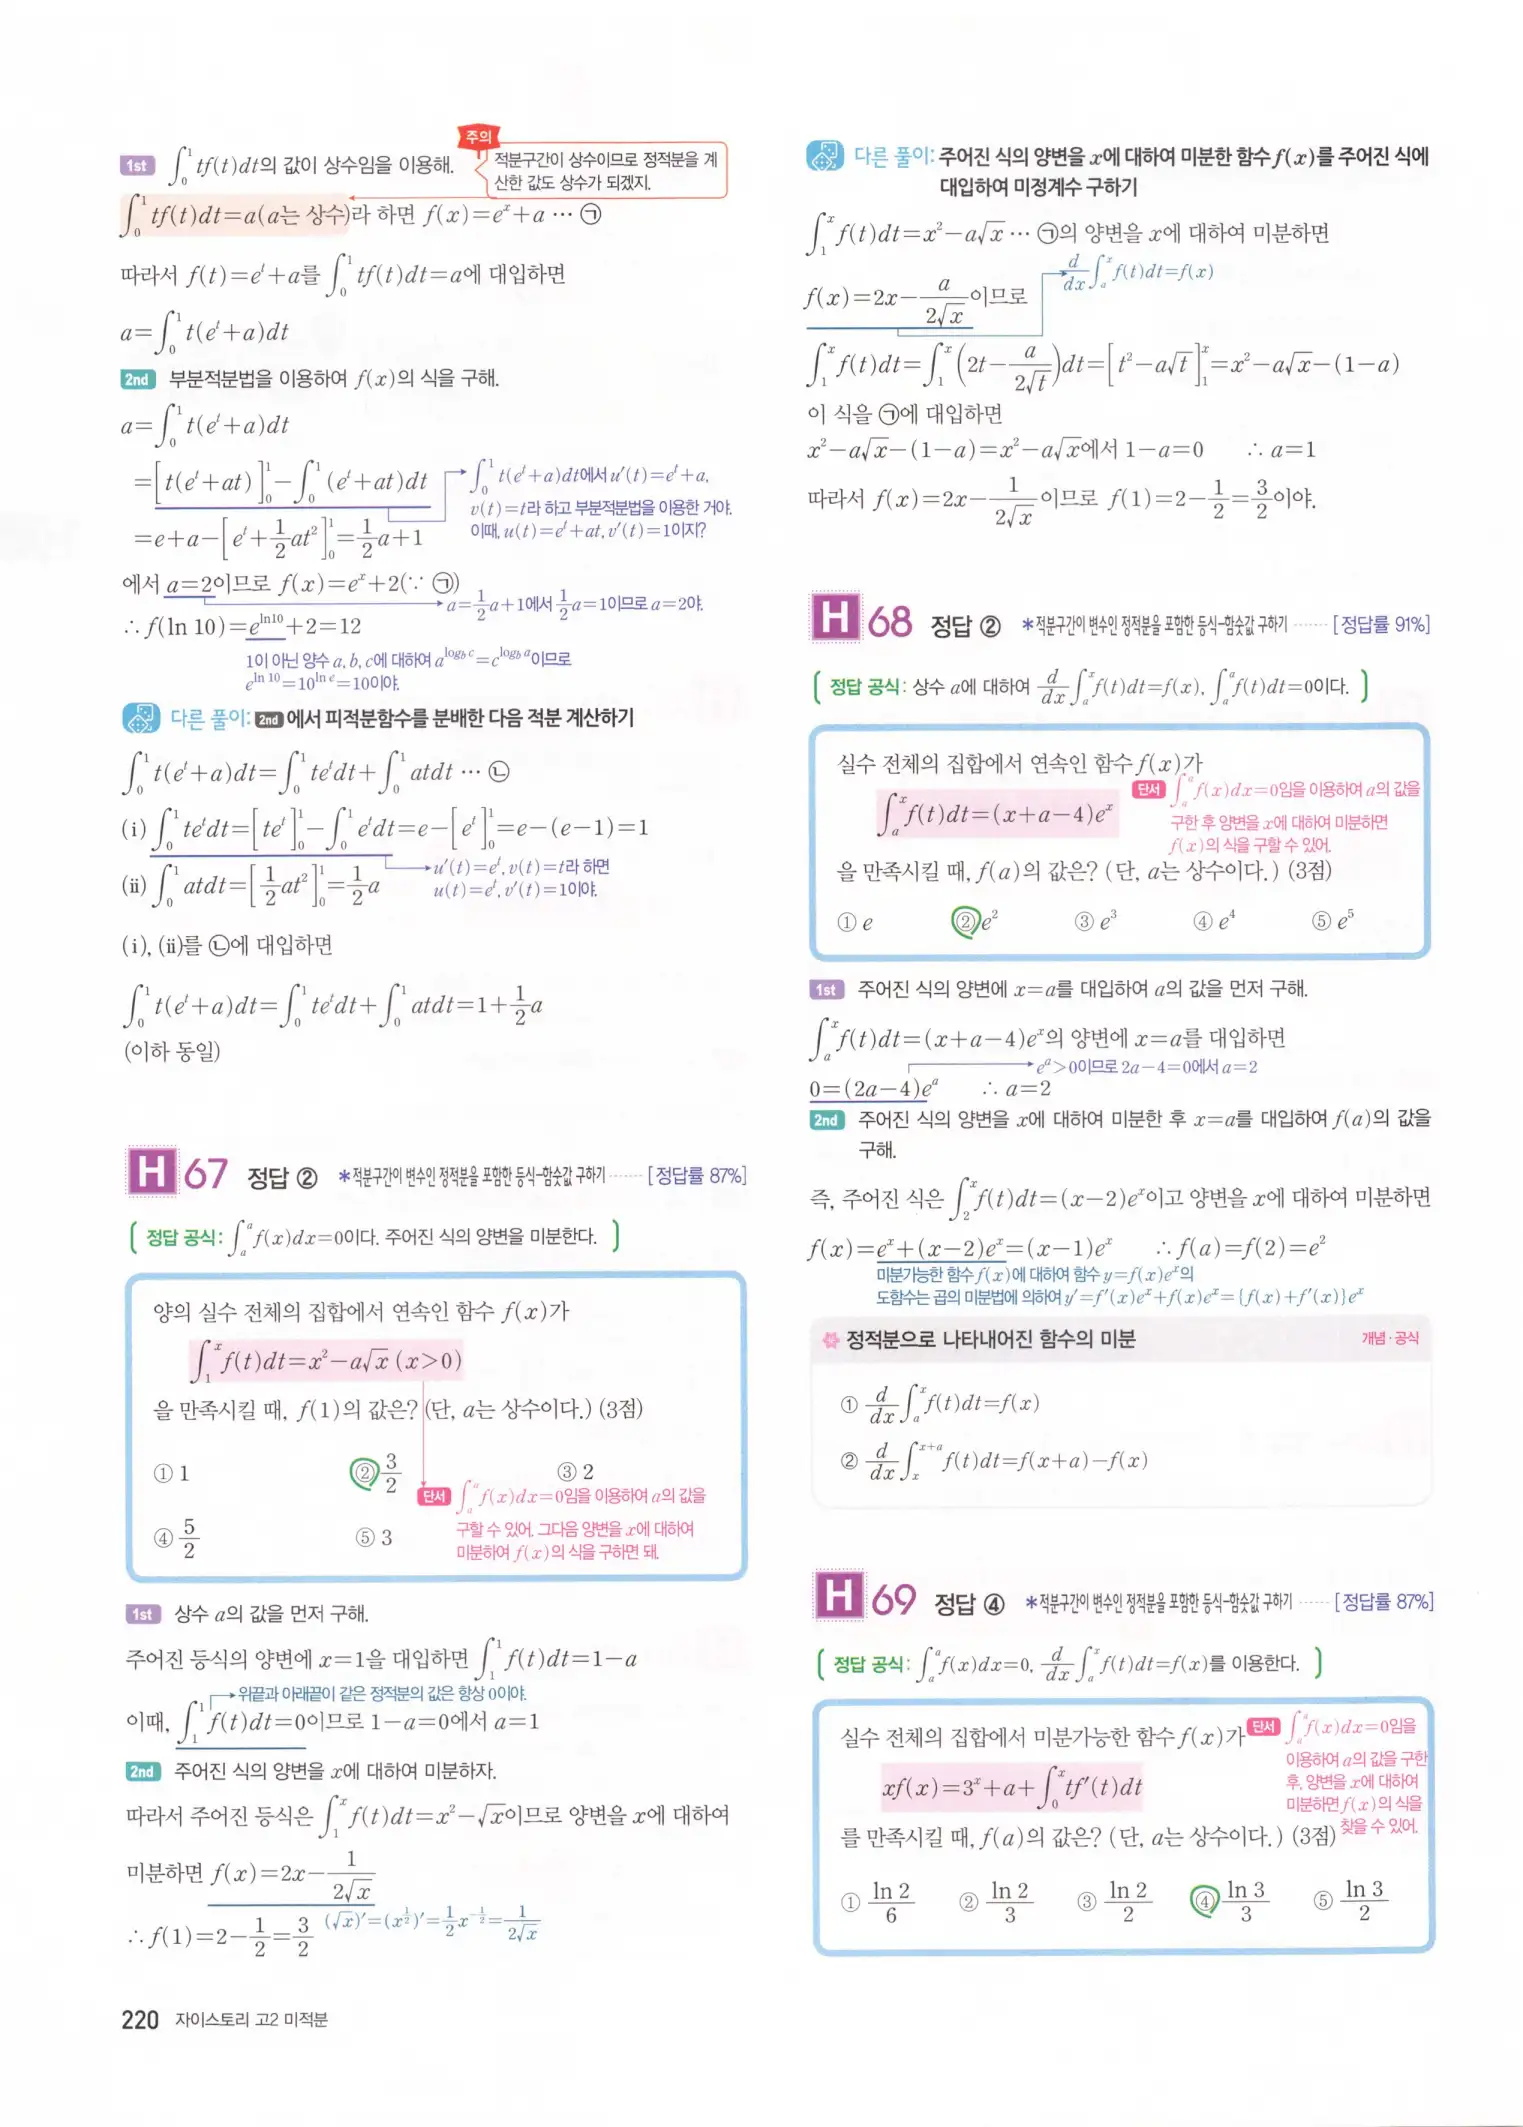 주의
1st ∫₀¹ tf(t)dt의 값이 상수임을 이용해.
적분구간이 상수이므로 정적분을 계
산한 값도 상수가 되겠지.
∫₀¹ tf(t)dt=a(a는 상수)라 하면 f(x)=eˣ+a ··· ㉠
따라서 f(t)=eᵗ+a를 ∫₀¹ tf(t)dt=a에 대입하면
a=∫₀¹ t(eᵗ+a)dt
2nd 부분적분법을 이용하여 f(x)의 식을 구해.
a=∫₀¹ t(eᵗ+a)dt
=[t(eᵗ+at)]₀¹-∫₀¹ (eᵗ+at)dt
=e+a-[eᵗ+1/2 at²]₀¹=1/2 a+1
∫₀¹ t(eᵗ+a)dt에서 u′(t)=eᵗ+a,
v(t)=t라 하고 부분적분법을 이용한 거야.
이때, u(t)=eᵗ+at, v′(t)=1이지?
에서 a=2이므로 f(x)=eˣ+2(∵ ㉠)
a=1/2 a+1에서 1/2 a=1이므로 a=2야.
∴ f(ln 10)=e^(ln10)+2=12
1이 아닌 양수 a, b, c에 대하여 a^(log_b c)=c^(log_b a)이므로
e^(ln 10)=10^(ln e)=10이야.
다른 풀이: 2nd 에서 피적분함수를 분배한 다음 적분 계산하기
∫₀¹ t(eᵗ+a)dt=∫₀¹ teᵗdt+∫₀¹ atdt ··· ㉡
(ⅰ) ∫₀¹ teᵗdt=[teᵗ]₀¹-∫₀¹ eᵗdt=e-[eᵗ]₀¹=e-(e-1)=1
u′(t)=eᵗ, v(t)=t라 하면
u(t)=eᵗ, v′(t)=1이야.
(ⅱ) ∫₀¹ atdt=[1/2 at²]₀¹=1/2 a
(ⅰ), (ⅱ)를 ㉡에 대입하면
∫₀¹ t(eᵗ+a)dt=∫₀¹ teᵗdt+∫₀¹ atdt=1+1/2 a
(이하 동일)
H 67 정답 ② *적분구간이 변수인 정적분을 포함한 등식-함숫값 구하기 ······ [정답률 87%]
( 정답 공식: ∫ₐᵃ f(x)dx=0이다. 주어진 식의 양변을 미분한다. )
양의 실수 전체의 집합에서 연속인 함수 f(x)가
∫₁ˣ f(t)dt=x²-a√x (x>0)
을 만족시킬 때, f(1)의 값은? (단, a는 상수이다.) (3점)
① 1 ② 3/2 ③ 2
단서 ∫ₐᵃ f(x)dx=0임을 이용하여 a의 값을
구할 수 있어. 그다음 양변을 x에 대하여
미분하여 f(x)의 식을 구하면 돼.
④ 5/2 ⑤ 3
1st 상수 a의 값을 먼저 구해.
주어진 등식의 양변에 x=1을 대입하면 ∫₁¹ f(t)dt=1-a
위끝과 아래끝이 같은 정적분의 값은 항상 0이야.
이때, ∫₁¹ f(t)dt=0이므로 1-a=0에서 a=1
2nd 주어진 식의 양변을 x에 대하여 미분하자.
따라서 주어진 등식은 ∫₁ˣ f(t)dt=x²-√x이므로 양변을 x에 대하여
미분하면 f(x)=2x-1/(2√x)
(√x)′=(x^(1/2))′=1/2 x^(-1/2)=1/(2√x)
∴ f(1)=2-1/2=3/2
220 자이스토리 고2 미적분
다른 풀이: 주어진 식의 양변을 x에 대하여 미분한 함수 f(x)를 주어진 식에
대입하여 미정계수 구하기
∫₁ˣ f(t)dt=x²-a√x ··· ㉠의 양변을 x에 대하여 미분하면
d/dx ∫ₐˣ f(t)dt=f(x)
f(x)=2x-a/(2√x)이므로
∫₁ˣ f(t)dt=∫₁ˣ (2t-a/(2√t))dt=[t²-a√t]₁ˣ=x²-a√x-(1-a)
이 식을 ㉠에 대입하면
x²-a√x-(1-a)=x²-a√x에서 1-a=0 ∴ a=1
따라서 f(x)=2x-1/(2√x)이므로 f(1)=2-1/2=3/2이야.
H 68 정답 ② *적분구간이 변수인 정적분을 포함한 등식-함숫값 구하기 ······ [정답률 91%]
( 정답 공식: 상수 a에 대하여 d/dx ∫ₐˣ f(t)dt=f(x), ∫ₐᵃ f(t)dt=0이다. )
실수 전체의 집합에서 연속인 함수 f(x)가
∫ₐˣ f(t)dt=(x+a-4)eˣ
단서 ∫ₐᵃ f(x)dx=0임을 이용하여 a의 값을
구한 후 양변을 x에 대하여 미분하면
f(x)의 식을 구할 수 있어.
을 만족시킬 때, f(a)의 값은? (단, a는 상수이다.) (3점)
① e ② e² ③ e³ ④ e⁴ ⑤ e⁵
1st 주어진 식의 양변에 x=a를 대입하여 a의 값을 먼저 구해.
∫ₐˣ f(t)dt=(x+a-4)eˣ의 양변에 x=a를 대입하면
eᵃ>0이므로 2a-4=0에서 a=2
0=(2a-4)eᵃ ∴ a=2
2nd 주어진 식의 양변을 x에 대하여 미분한 후 x=a를 대입하여 f(a)의 값을
구해.
즉, 주어진 식은 ∫₂ˣ f(t)dt=(x-2)eˣ이고 양변을 x에 대하여 미분하면
f(x)=eˣ+(x-2)eˣ=(x-1)eˣ ∴ f(a)=f(2)=e²
미분가능한 함수 f(x)에 대하여 함수 y=f(x)eˣ의
도함수는 곱의 미분법에 의하여 y′=f′(x)eˣ+f(x)eˣ={f(x)+f′(x)}eˣ
정적분으로 나타내어진 함수의 미분 개념·공식
① d/dx ∫ₐˣ f(t)dt=f(x)
② d/dx ∫ₓˣ⁺ᵃ f(t)dt=f(x+a)-f(x)
H 69 정답 ④ *적분구간이 변수인 정적분을 포함한 등식-함숫값 구하기 ······ [정답률 87%]
( 정답 공식: ∫ₐᵃ f(x)dx=0, d/dx ∫ₐˣ f(t)dt=f(x)를 이용한다. )
실수 전체의 집합에서 미분가능한 함수 f(x)가
단서 ∫ₐᵃ f(x)dx=0임을
이용하여 a의 값을 구한
후, 양변을 x에 대하여
미분하면 f(x)의 식을
찾을 수 있어.
xf(x)=3ˣ+a+∫₀ˣ tf′(t)dt
를 만족시킬 때, f(a)의 값은? (단, a는 상수이다.) (3점)
① ln 2/6 ② ln 2/3 ③ ln 2/2 ④ ln 3/3 ⑤ ln 3/2